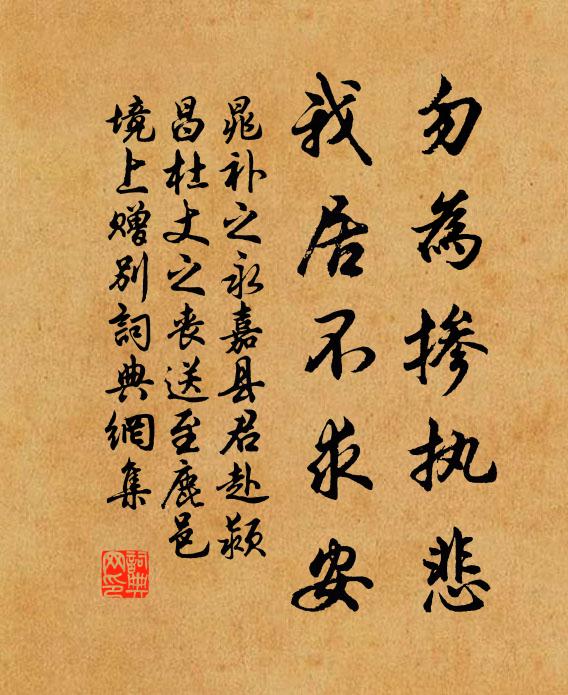 勿為掺执悲
我居不求安
晁补之永嘉县君赴颍
昌杜丈之丧送至鹿邑
境上赠别詞典網集
詞典网印